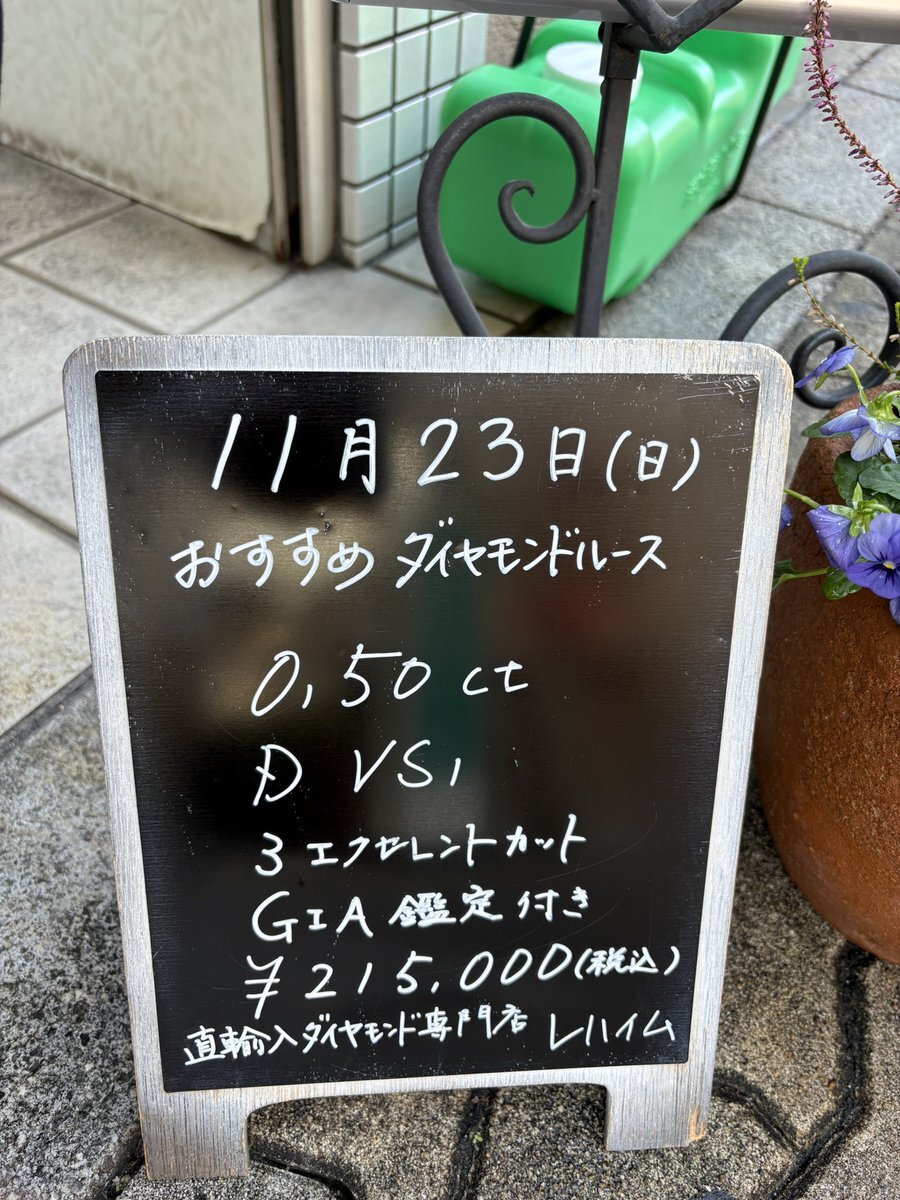 11月23日(日)
おすすめ ダイヤモンドルース
0.50 ct
D VS1
3エクセレントカット
GIA 鑑定付き
¥215,000(税込)
直輸入ダイヤモンド専門店 レハイム